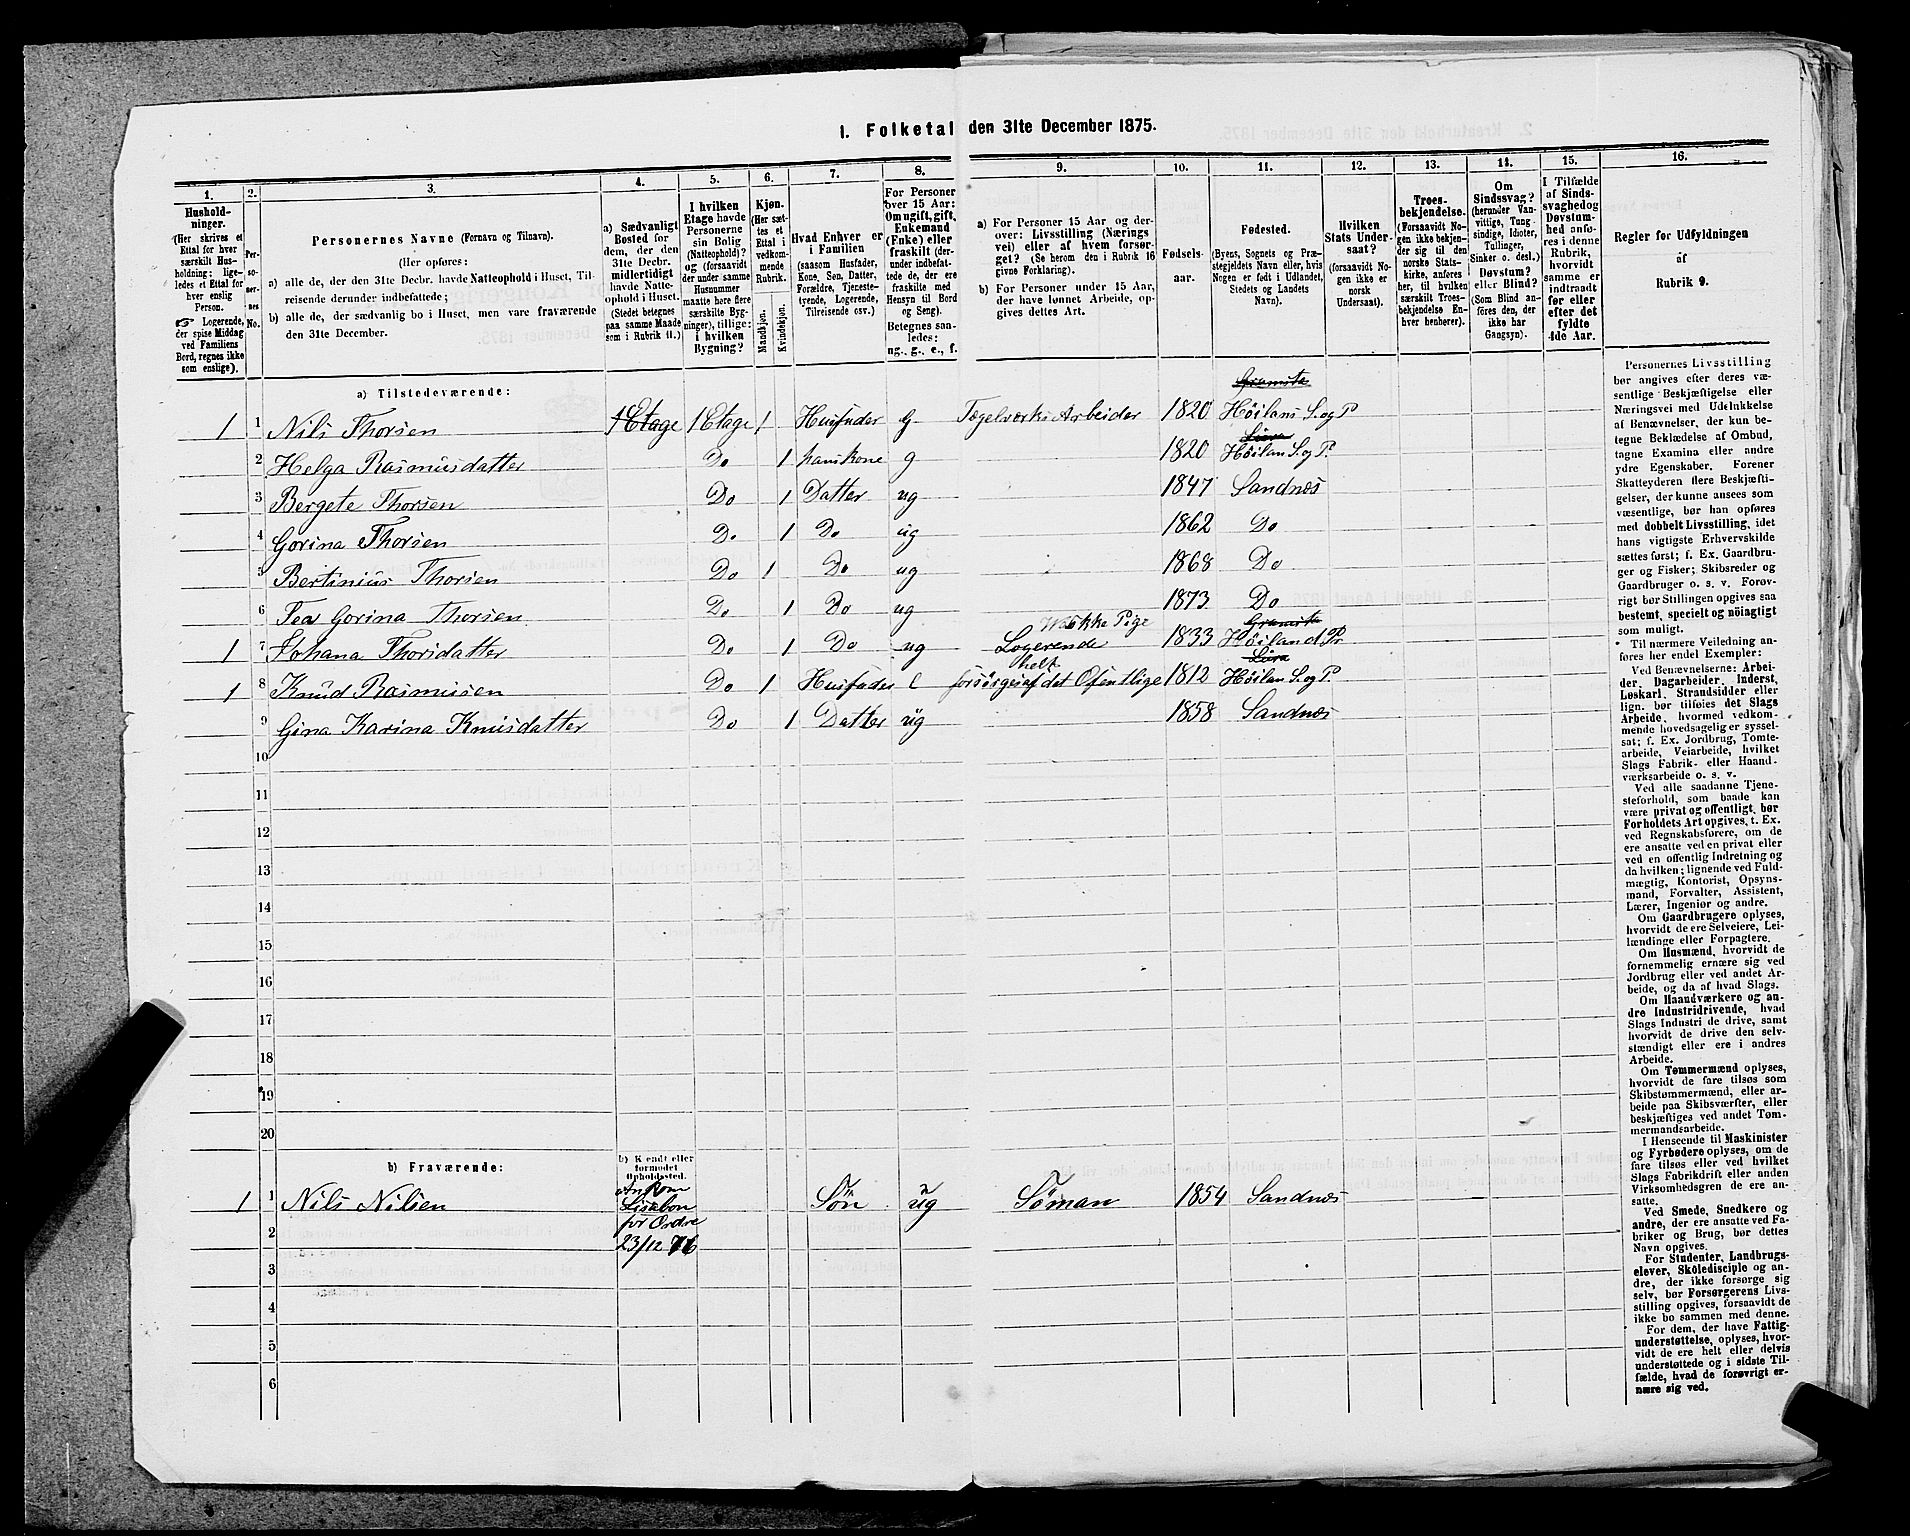 1. Folketal den 31te December 1875.
1. 2. 3. 4. 5. 6. 7. 8. 9. 10. 11. 12. 13. 14. 15. 16.
Hushold-
ninger.
(Her skrives et
Ettal for hver
særskilt Hus-
holdning; lige-
ledes et Ettal for
hver enslig
Person.
☞ Logerende,
der spise Middag
ved Familiens
Bord, regnes ikke
som enslige).
Per-
so-
ner-
nes
No.
Personernes Navne (Fornavn og Tilnavn).
(Her opføres:
a) alle de, der den 31te Decbr. havde Natteophold i Huset, Til-
reisende derunder indbefattede;
b) alle de, der sædvanlig bo i Huset, men vare fraværende
den 31te December.
a) Sædvanligt
Bosted for
dem, der den
31te Decbr.
midlertidigt
havde Natte-
ophold i Huset.
(Stedet betegnes
paa samme Maade
som i Rubrik 11.)
I hvilken
Etage havde
Personerne
sin Bolig
(Natteophold)?
og (forsaavidt
der under samme
Husnummer
maatte høre flere
særskilte Byg-
ninger), tillige:
i hvilken
Bygning?
Kjøn.
(Her sæt-
tes et
Ettal i
vedkom-
mende
Rubrik.
Mandkjøn.
Kvindekjøn.
Hvad Enhver er
i Familien
(saasom Husfader,
Kone, Søn, Datter,
Forældre, Tjeneste-
tyende, Logerende,
Tilreisende osv.)
For Personer
over 15 Aar:
Om ugift, gift,
Enkemand
(Enke) eller
fraskilt (der-
under indbefat-
tede de, der ere
fraskilte med
Hensyn til Bord
og Seng).
Betegnes saa-
ledes:
ug., g., e., f.
a) For Personer 15 Aar og der-
over: Livsstilling (Nærings
vei) eller af hvem forsør-
get? (Se herom den i Rubrik 16
givne Forklaring).
b) For Personer under 15 Aar,
der have lønnet Arbeide, op-
gives dettes Art.
Fødsels-
aar.
Fødested.
(Byens, Sognets og Præ-
stegjeldets Navn eller, hvis
Nogen er født i Udlandet,
Stedets og Landets
Navn).
Hvilken
Stats Under-
saat?
(forsaavidt No-
gen ikke er
norsk
Undersaat).
Troes-
bekjendelse.
(Forsaavidt No-
gen ikke bekjen-
der sig til den
norske Stats-
kirke, anføres
her, til hvilken
særskilt Troes-
bekjendelse En-
hver henhører).
Om
Sindssvag?
(herunder Van-
vittige, Tung-
sindige, Idioter,
Tullinger,
Sinker o. desl.)
Døvstum?
eller Blind?
(Som Blind an-
føres den, der
ikke har
Gangsyn).
I Tilfælde
af Sinds-
svaghed og
Døvstum-
hed anfø-
res i denne
Rubrik,
hvorvidt
samme er
indtraadt
før eller
efter det
fyldte
4de Aar.
Regler for Udfyldningen
af
Rubrik 9.
a) Tilstedeværende:
1 1 Nils Thorsen 1 Etage 1 Etage 1 Husfader G Tegelværks Arbeider 1820 Høilans S. og P
2 Helga Rasmusdatter Do 1 hans kone g 1820 Høilan S. og P.
3 Bergete Thorsen Do 1 Datter ug 1847 Sandnæs
4 Gorina Thorsen Do 1 Do ug 1862 Do
5 Bertinius Thorsen Do 1 Do ug 1868 Do
6 Tea Gorina Thorsen Do 1 Do ug 1873 Do
1 7 Johana Thorsdatter Do 1 Do ug Logerende Wakke Pige 1833 Høiland Pr
1 8 Knud Rasmusen Do 1 Husfader E forsørges helt af det Ofentlige 1812 Høilan S. og P
9 Gina Karina Knusdatter Do 1 Datter ug 1858 Sandnæs
10
11
12
13
14
15
16
17
18
19
20
b) Fraværende:
b) Kjendt eller
formodet
Opholdssted.
1 1 Nils Nilsen Ankom Søn ug Søman 1854 Sandnæs
Lisabon
2 for Ordre
23/12 76
3
4
5
6
Personernes Livsstilling
bør angives efter deres væ-
sentlige Beskjæftigelse eller
Næringsvei med Udelukkelse
af Benævnelser, der kun be-
tegne Beklædelse af Ombud,
tagne Examina eller andre
ydre Egenskaber. Forener
Skatteyderen flere Beskjæfti-
gelser, der kunne ansees som
væsentlige, bør han opføres
med dobbelt Livsstilling, idet
hans vigtigste Erhvervskilde
sættes først; f. Ex. Gaardbru-
ger og Fisker; Skibsreder og
Gaardbruger o. s. v. Forøv-
rigt bør Stillingen opgives saa
bestemt, specielt og nöiagtigt
som muligt.
* Til nærmere Veiledning an-
føres her endel Exempler:
Ved Benævnelserne: Arbei-
der, Dagarbeider, Inderst,
Løskarl, Strandsidder eller
lign. bør tilføies det Slags
Arbeide, hvormed vedkom-
mende hovedsagelig er syssel-
sat; f. Ex. Jordbrug, Tomte-
arbeide, Veiarbeide, hvilket
Slags Fabrik- eller Haand-
værksarbeide o. s. v.
Ved alle saadanne Tjene-
steforhold, som baade kan
være privat og offentligt, bør
Forholdets Art opgives, t. Ex.
ved Regnskabsførere, om de
ere ansatte ved en privat eller
ved en offentlig Indretning og
da hvilken; lignende ved Fuld-
mægtig, Kontorist, Opsyns-
mand, Forvalter, Assistent,
Lærer, Ingeniør og andre.
Om Gaardbrugere oplyses,
hvorvidt de ere Selveiere, Lei-
lændinge eller Forpagtere.
Om Husmænd, hvorvidt de
fornemmelig ernære sig ved
Jordbrug eller ved andet Ar-
beide, og da af hvad Slags.
Om Haandværkere og an-
dre Industridrivende, hvad
Slags Industri de drive, samt
hvorvidt de drive den selv-
stændigt eller ere i andres
Arbeide.
Om Tømmermænd oplyses,
hvorvidt de fare tilsøs som
Skibstømmermænd, eller ar-
beide paa Skibsværfter, eller
beskjæftiges ved andet Tøm-
mermandsarbeide.
I Henseende til Maskinister
og Fyrbødere oplyses, om de
fare tilsøs eller ved hvilket
Slags Fabrikdrift eller anden
Virksomhedsgren de ere an-
satte.
Ved Smede, Snedkere og
andre, der ere ansatte ved Fa-
briker og Brug, bør dettes
Navn opgives.
For Studenter, Landbrugs-
elever, Skoledisciple og an-
dre, der ikke forsørge sig
selv, bør Forsørgerens Livs-
stilling opgives, forsaavidt de
ikke bo sammen med denne.
For dem, der have Fattig-
understøttelse, oplyses, hvor-
vidt de ere helt eller delvis
understøttede og i sidste Til-
fælde, hvad de forøvrigt er-
nære sig ved.